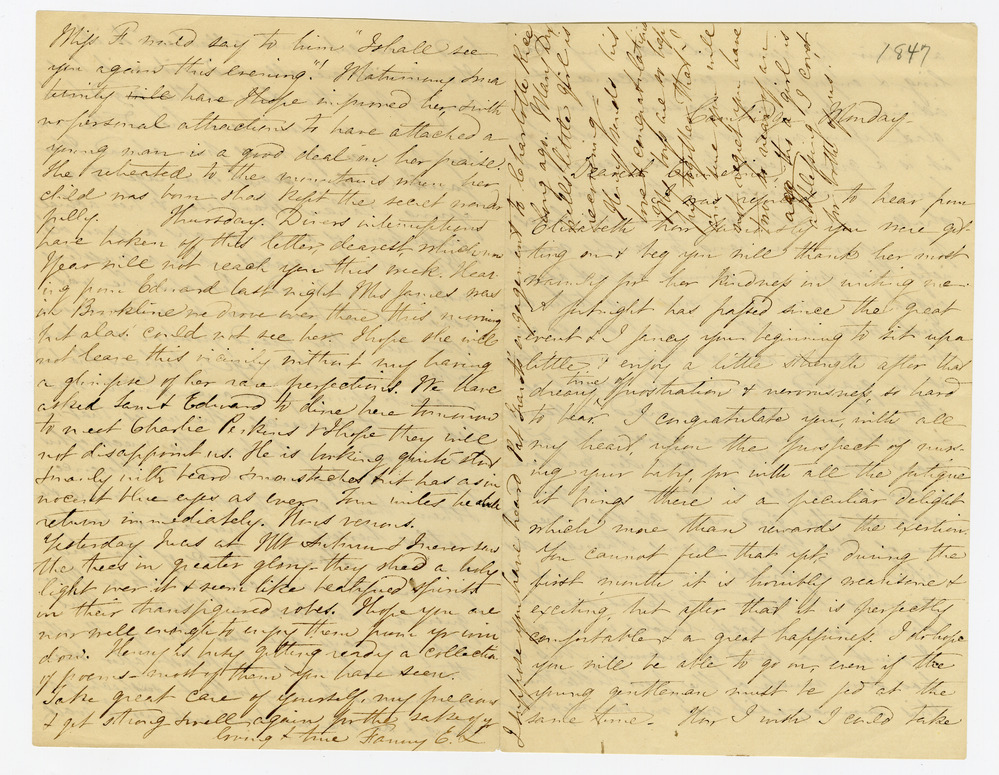 1847
Cambridge Monday-
Dearest Emmeline
I was rejoiced to hear from
Elizabeth how famously you were get-
ting on & beg you will thank her most
warmly for her kindness in writing me.
A fortnight has passed since the great
event & I fancy you beginning to sit up a
little & enjoy a little strength after that
dreary time, prostration & nervousness, so hard
to bear. I congratulate you, with all
my heart, upon the prospect of nurs-
ing your baby, for with all the fatigue
it brings there is a peculiar delight
which more than rewards the exertion.
You cannot feel that yet, during the
first month it is horribly wearisome &
exciting, but after that it is perfectly
comfortable & a great happiness. I do hope
you will be able to go on, even if the
young gentleman must be fed at the
same time. How I wish I could take
Miss A would say to him "I shall see
you again this evening"! Matrimony & ma
ternity will have I hope improved her, with
no personal attractions to have attached a
young man is a good deal in her praise.
She retreated to the mountains when her
child was born & has kept the secret wonder
fully. Thursday. Divers interruptions
have broken off this letter, dearest, which now
I fear will not reach you this week. Hear
ing from Edward last night Mrs James was
in Brookline we drove over there this morning
but alas! could not see her. I hope she will
not leave this vicinity without my having
a glimpse of her rare perfections. We have
asked Sam & Edward to dine here tomorrow
to meet Charlie Perkins & I hope they will
not disappoint us. He is looking quite stout
& manly with beard & moustaches but has as in
nocent blue eyes as ever. Tom writes he will
return immediately. Nous verrons.
Yesterday I was at Mt Auburn & I never saw
the trees in greater glory - they shed a holy
light over it & seem like beatified spirits
in their transfigured robes. I hope you are
now well enough to enjoy them from yr win
dow. Henry is busy getting ready a collection
of poems - most of them you have seen.
Take great care of yourself, my precious
& get strong & well again for the sake of yr
loving & true Fanny E. L
I suppose you have heard Pat Grant's engagement to Charlotte Rice
long ago. Mary Dw
ight's little girl is
Henry sends his
warmest congratulations
that you are so hap
py together. That
time you will
not regret you have
a girl is
a thing I covet
for both of us.